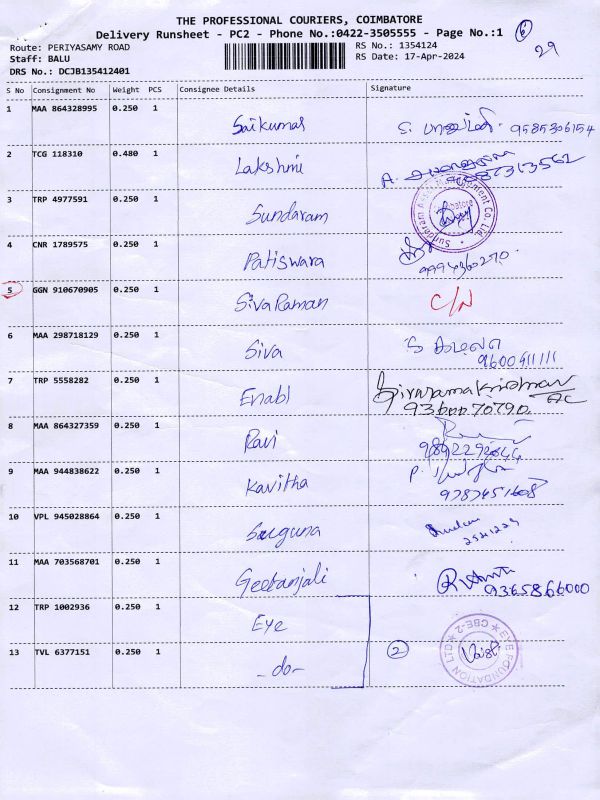 THE PROFESSIONAL COURIERS, COIMBATORE
Delivery Runsheet - PC2 - Phone No.:0422-3505555 - Page No.:1
6
29
Route: PERIYASAMY ROAD
RS No.: 1354124
Staff: BALU
RS Date: 17-Apr-2024
DRS No.: DCJB135412401
S No Consignment No Weight PCS Consignee Details Signature
1 MAA 864328995 0.250 1 Saikumar 9585306154
2 TCG 118310 0.480 1 Lakshmi A.
3 TRP 4977591 0.250 1 Sundaram
4 CNR 1789575 0.250 1 Patiswara
9994360270
5 GGN 910670905 0.250 1 SivaRaman C/N
6 MAA 298718129 0.250 1 Siva
9600411111
7 TRP 5558282 0.250 1 Enabl Sivaramakrishnan
9360070790
8 MAA 864327359 0.250 1 Ravi
9892292844
9 MAA 944838622 0.250 1 Kavitha P.
9787651608
10 VPL 945028864 0.250 1 Suguna
2541223
11 MAA 703568701 0.250 1 Geetanjali
9365866000
12 TRP 1002936 0.250 1 Eye
13 TVL 6377151 0.250 1 -do- 2
EYE FOUNDATION LTD CBE-2